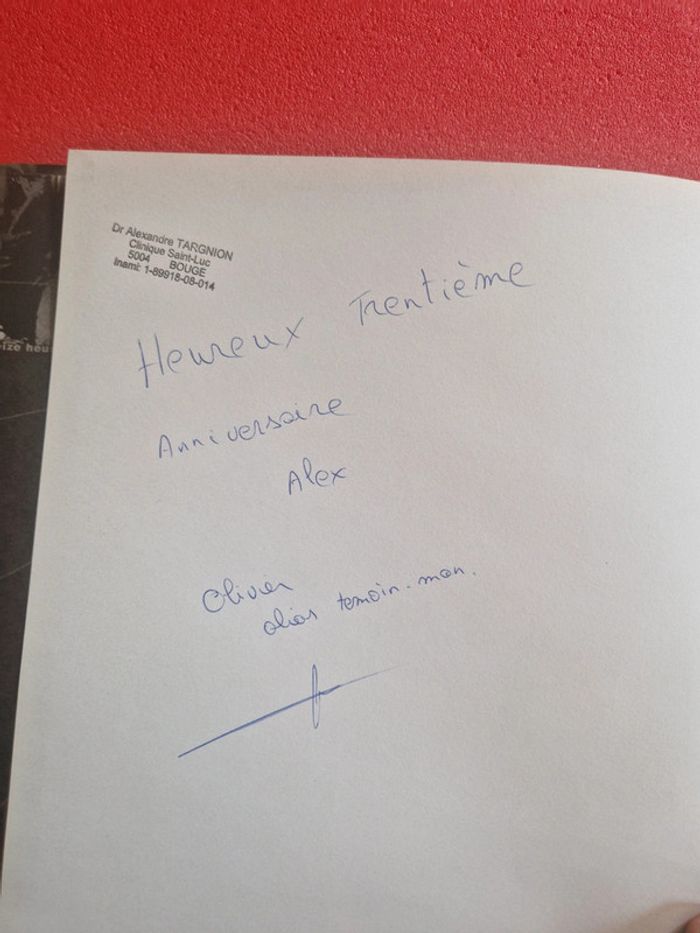 Dr Alexandre TARGNION
Clinique Saint-Luc
5004 BOUGE
Inami: 1-89918-08-014
Heureux Trentième
Anniversaire
Alex
Olivier
alias temoin-man.
ize heu